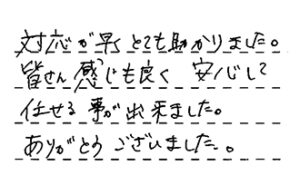 対応が早くとても助かりました。
皆さん感じも良く 安心して
任せる事が出来ました。
ありがとうございました。